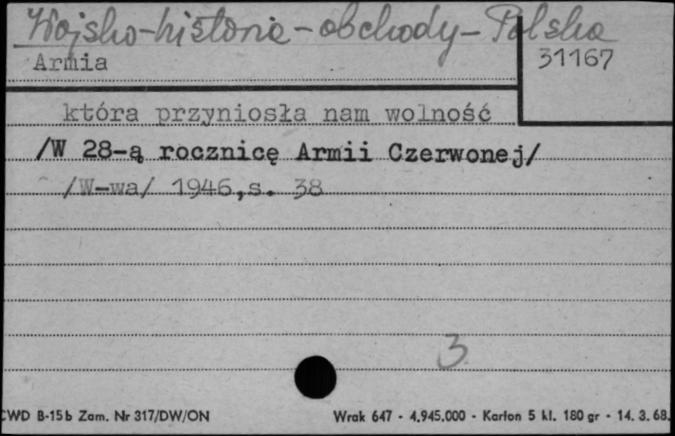 Wojsko-historia-obchody-Polska
Armia
31167
która przyniosła nam wolność
/W 28-ą rocznicę Armii Czerwonej/
/W-wa/ 1946,s. 38
3
CWD B-15b Zam. Nr 317/DW/ON
Wrak 647 - 4.945.000 - Karton 5 kl. 180 gr - 14. 3. 68.